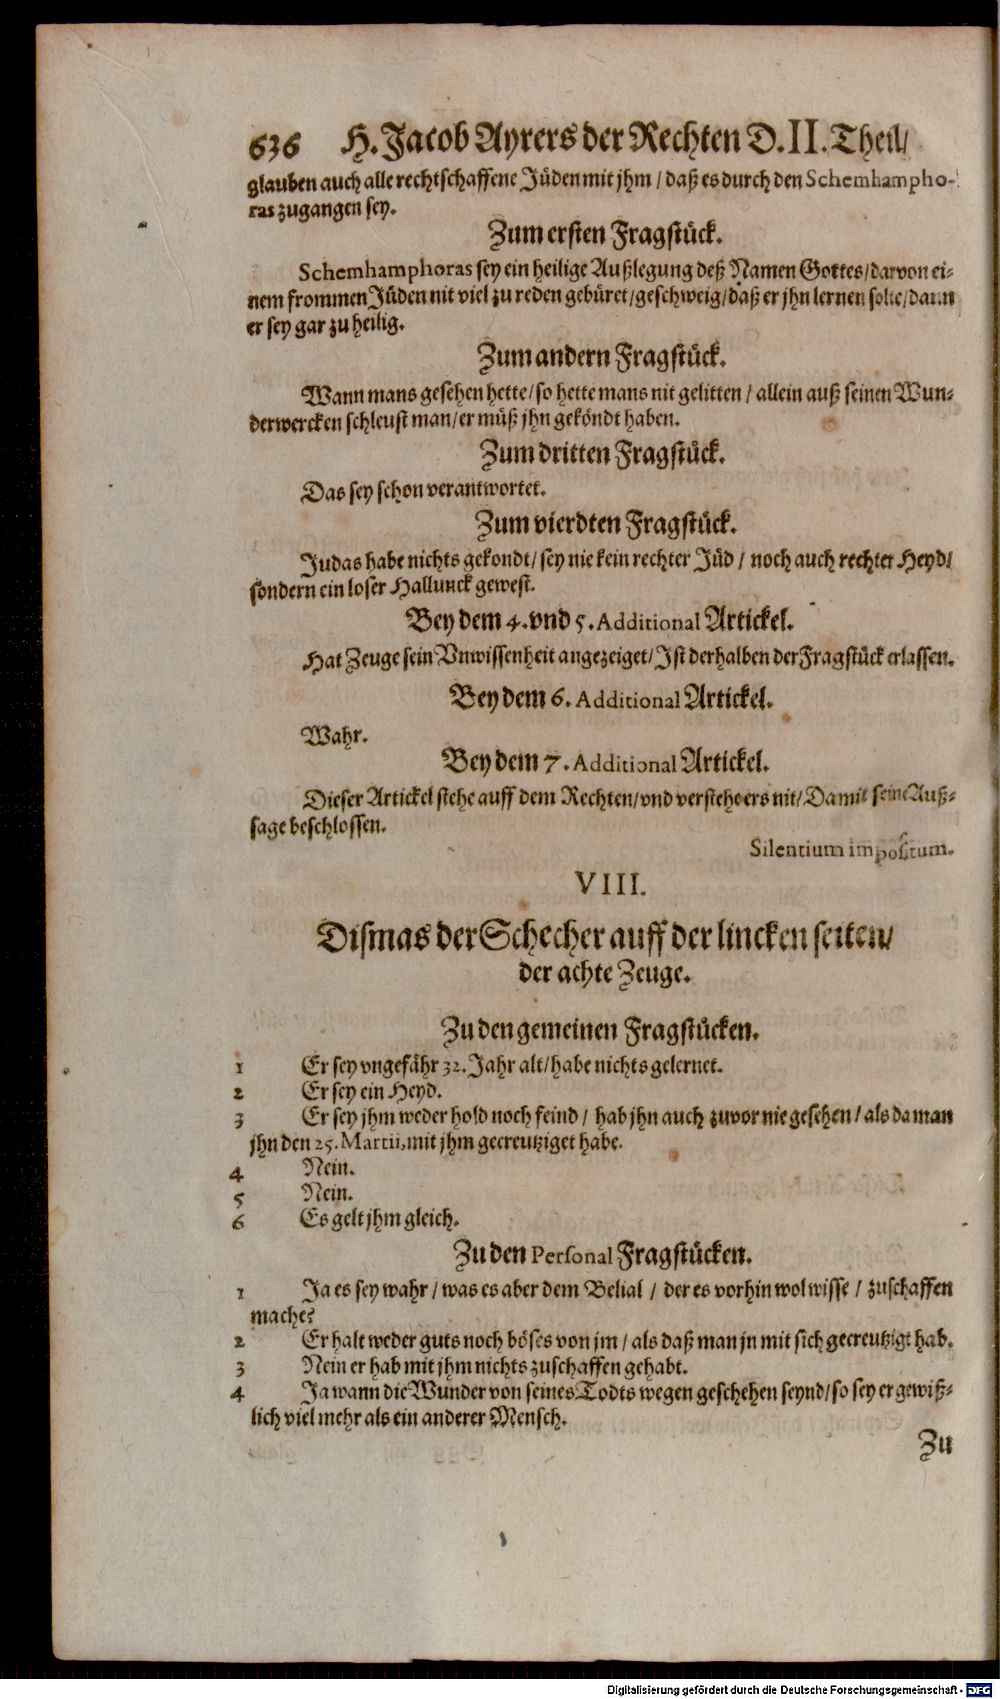 636 H. Jacob Ayrers der Rechten D. II. Theil/
glauben auch alle rechtschaffene Jüden mit jhm / daß es durch den Schemhampho-
ras zugangen sey.
Zum ersten Fragstück.
Schemhamphoras sey ein heilige Außlegung deß Namen Gottes/darvon ei-
nem frommen Jüden nit viel zu reden gebüret/geschweig/daß er jhn lernen solte/dann
er sey gar zu heilig.
Zum andern Fragstück.
Wann mans gesehen hette/so hette mans nit gelitten / allein auß seinen Wun-
derwercken schleust man/er müß jhn geköndt haben.
Zum dritten Fragstück.
Das sey schon verantwortet.
Zum vierdten Fragstück.
Judas habe nichts gekondt/ sey nie kein rechter Jüd / noch auch rechter Heyd/
sondern ein loser Hallunck gewest.
Bey dem 4. vnd 5. Additional Artickel.
Hat Zeuge sein Vnwissenheit angezeiget/Ist derhalben der Fragstück erlassen.
Bey dem 6. Additional Artickel.
Wahr.
Bey dem 7. Additional Artickel.
Dieser Artickel stehe auff dem Rechten/vnd verstehe ers nit/Damit seine Auß-
sage beschlossen.
Silentium impositum.
VIII.
Dismas der Schecher auff der lincken seiten/
der achte Zeuge.
Zu den gemeinen Fragstücken.
1 Er sey vngefähr 32. Jahr alt/habe nichts gelernet.
2 Er sey ein Heyd.
3 Er sey jhm weder hold noch feind / hab jhn auch zuvor nie gesehen / als da man
jhn den 25. Martii, mit jhm gecreutziget habe.
4 Nein.
5 Nein.
6 Es gelt jhm gleich.
Zu den Personal Fragstücken.
1 Ja es sey wahr / was es aber dem Belial / der es vorhin wol wisse / zuschaffen
mache?
2 Er halt weder guts noch böses von jm / als daß man jn mit sich gecreutzigt hab.
3 Nein er hab mit jhm nichts zuschaffen gehabt.
4 Ja wann die Wunder von seines Todts wegen geschehen seynd/so sey er gewiß-
lich viel mehr als ein anderer Mensch.
Zu
Digitalisierung gefördert durch die Deutsche Forschungsgemeinschaft - DFG